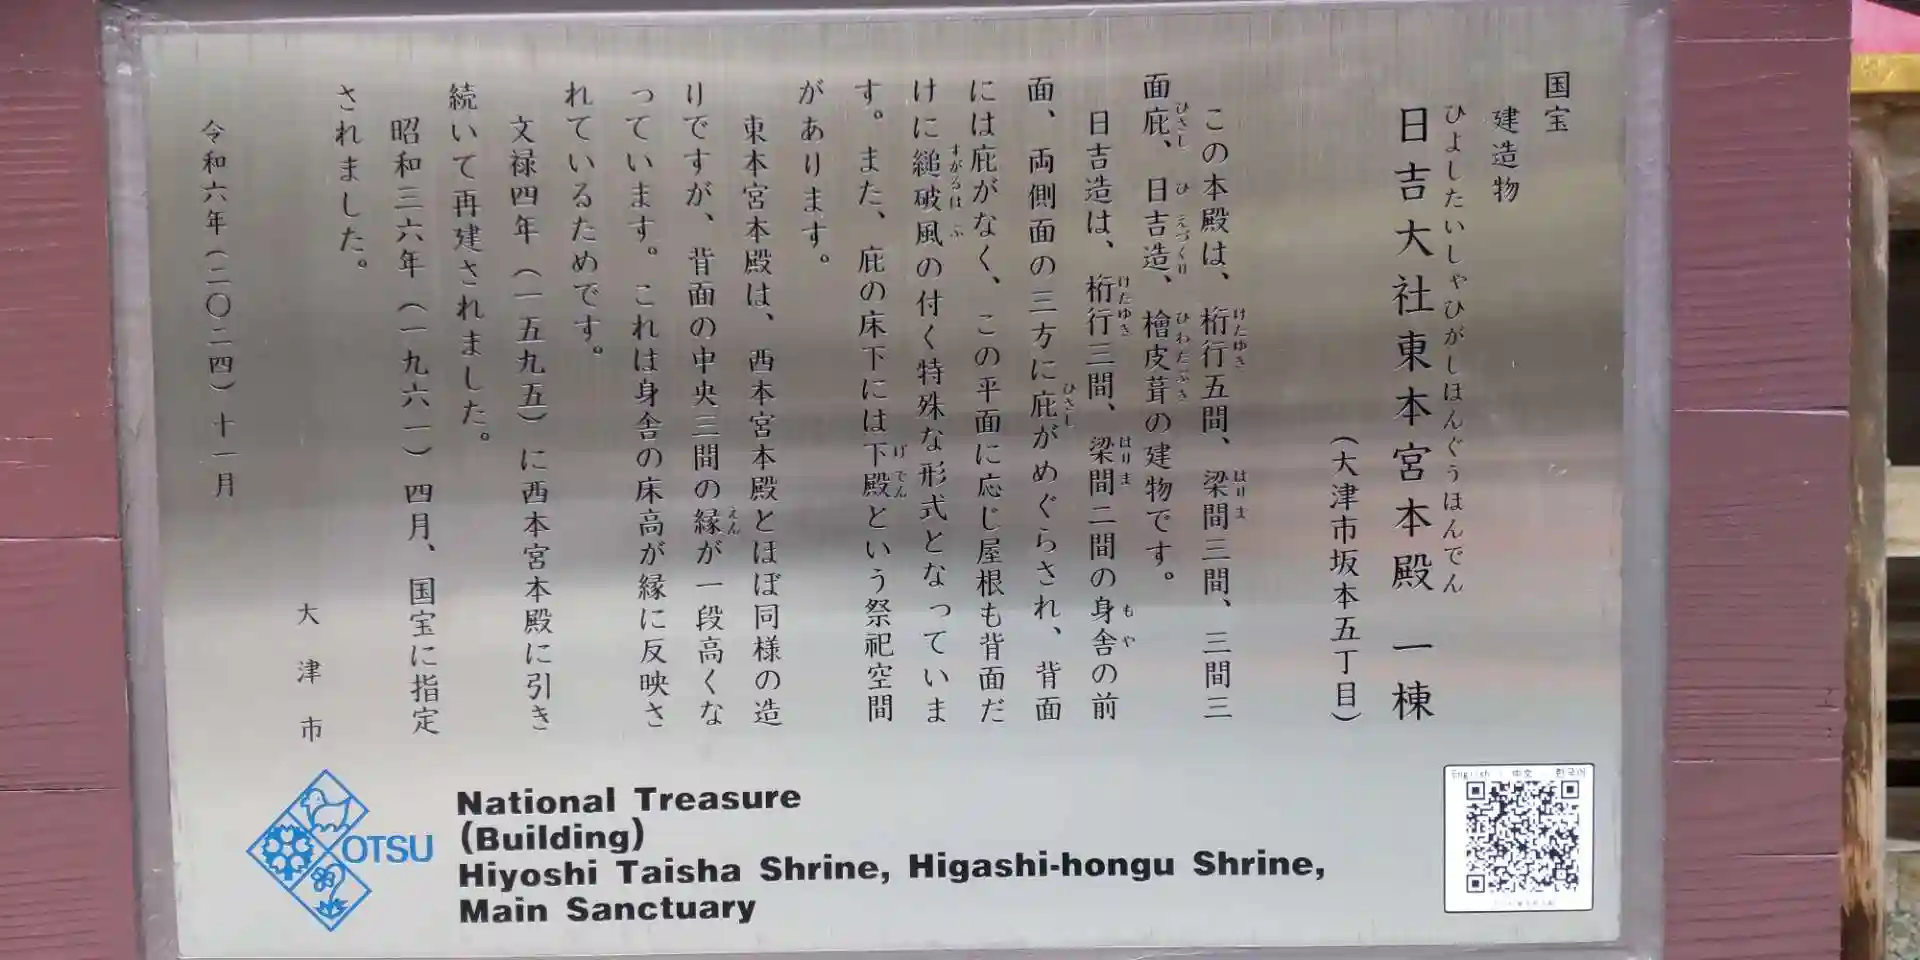 国宝
建造物
ひよしたいしゃひがしほんぐうほんでん
日吉大社東本宮本殿 一棟
(大津市坂本五丁目)
けたゆき はりま
この本殿は、桁行五間、梁間三間、三間三
ひさし ひえづくり ひわだぶき
面庇、日吉造、檜皮葺の建物です。
けたゆき はりま もや
日吉造は、桁行三間、梁間二間の身舎の前
ひさし
面、両側面の三方に庇がめぐらされ、背面
には庇がなく、この平面に応じ屋根も背面だ
すがるはふ
けに縋破風の付く特殊な形式となっていま
げでん
す。また、庇の床下には下殿という祭祀空間
があります。
東本宮本殿は、西本宮本殿とほぼ同様の造
えん
りですが、背面の中央三間の縁が一段高くな
っています。これは身舎の床高が縁に反映さ
れているためです。
文禄四年(一五九五)に西本宮本殿に引き
続いて再建されました。
昭和三六年(一九六一)四月、国宝に指定
されました。
大津市
令和六年(二〇二四)十一月
OTSU
National Treasure
(Building)
Hiyoshi Taisha Shrine, Higashi-hongu Shrine,
Main Sanctuary
English 中文 한국어